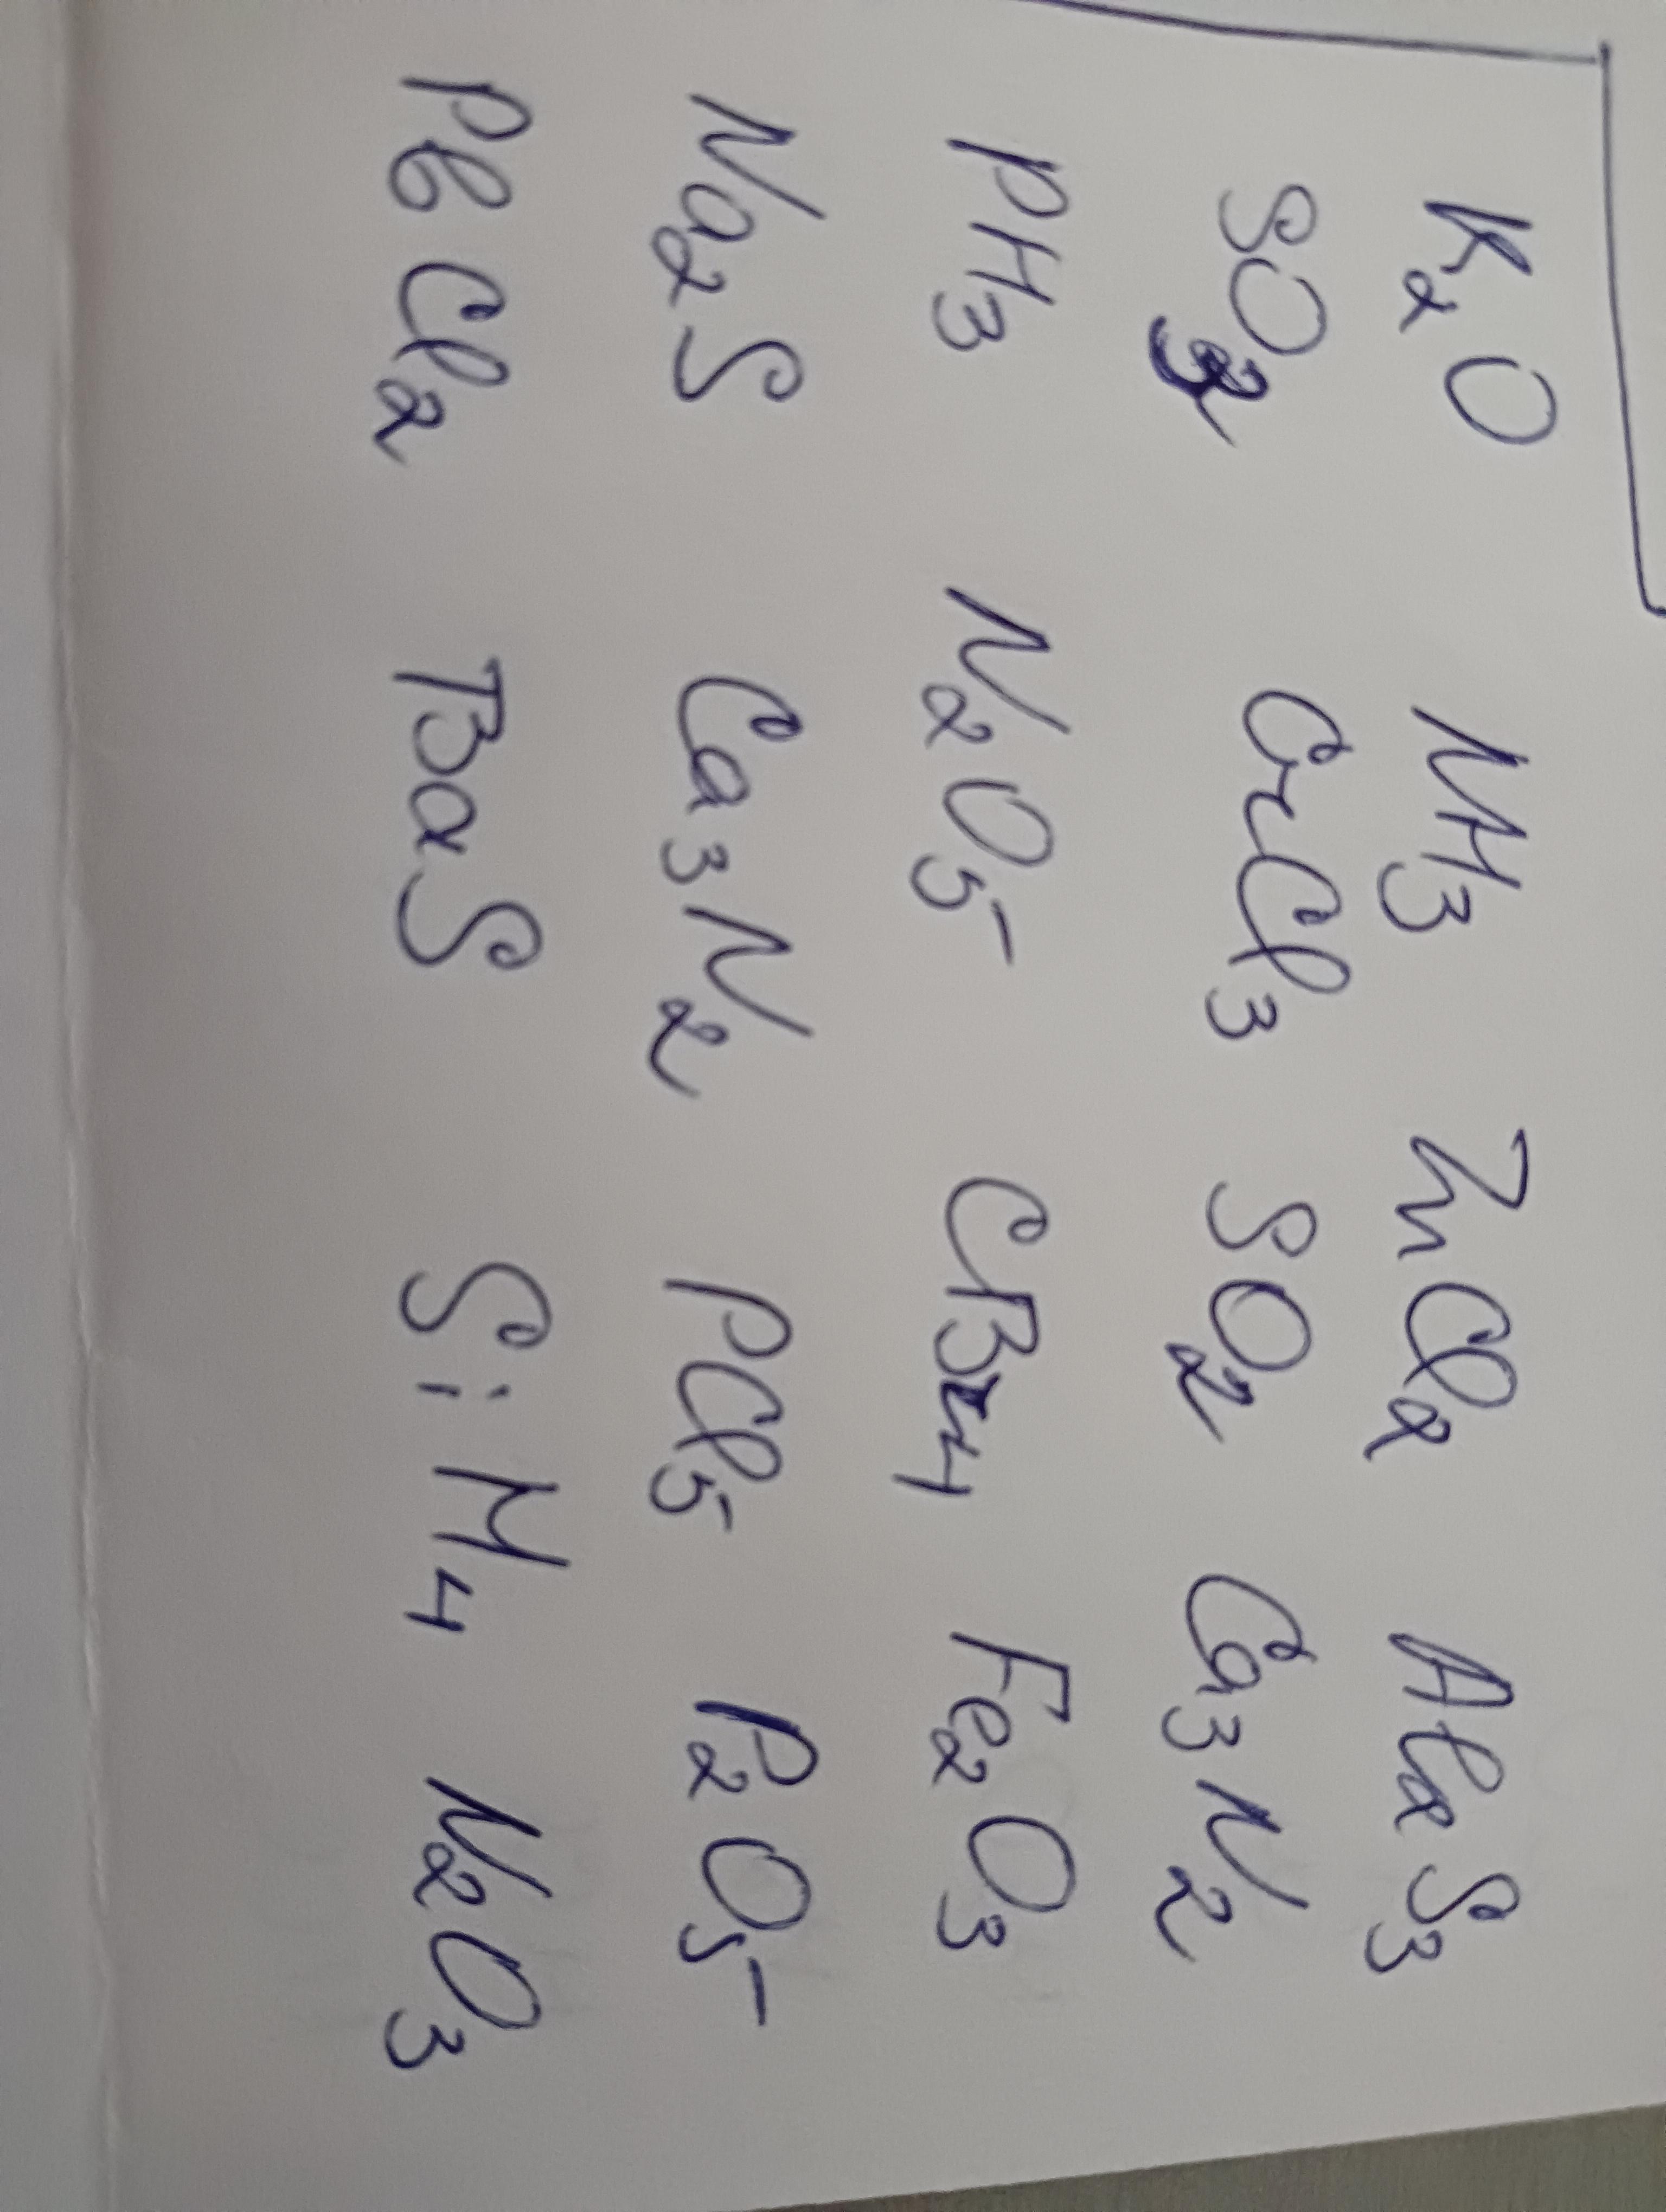 K₂O NH₃ ZnCl₂ Al₂S₃
SO₂ CrCl₃ SO₂ Ca₃N₂
PH₃ N₂O₅ CBr₄ Fe₂O₃
Na₂S Ca₃N₂ PCl₅ P₂O₅
PbCl₂ BaS SiH₄ N₂O₃